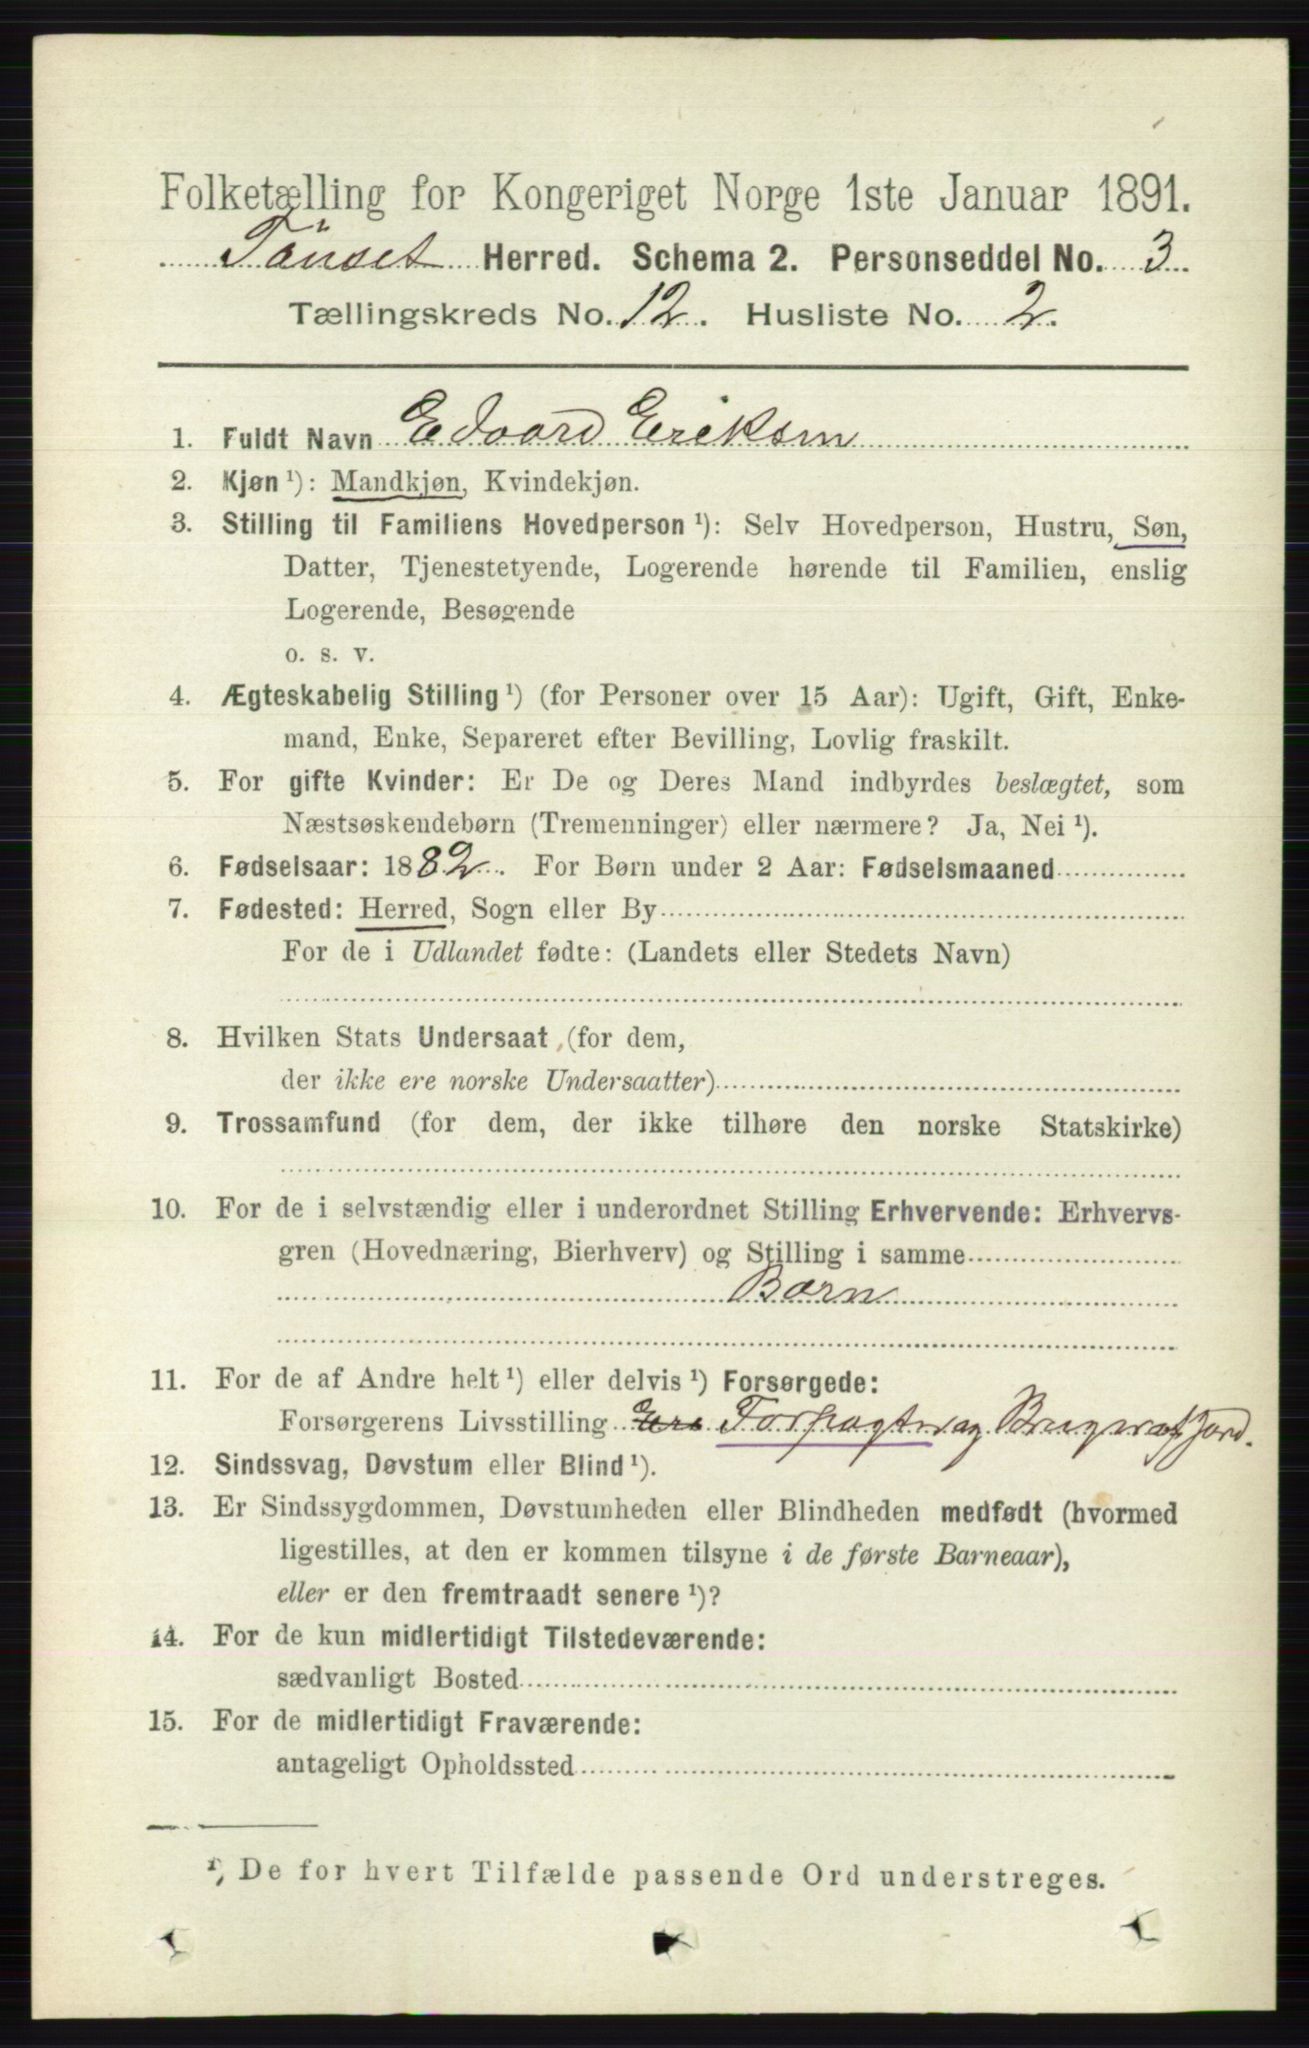 Folketælling for Kongeriget Norge 1ste Januar 1891.
Tönset Herred. Schema 2. Personseddel No. 3.
Tællingskreds No. 12. Husliste No. 2.
1. Fuldt Navn Edvard Eriksen
2. Kjøn ¹): Mandkjøn, Kvindekjøn.
3. Stilling til Familiens Hovedperson ¹): Selv Hovedperson, Hustru, Søn,
Datter, Tjenestetyende, Logerende hørende til Familien, enslig
Logerende, Besøgende
o. s. v.
4. Ægteskabelig Stilling ¹) (for Personer over 15 Aar): Ugift, Gift, Enke-
mand, Enke, Separeret efter Bevilling, Lovlig fraskilt.
5. For gifte Kvinder: Er De og Deres Mand indbyrdes beslægtet, som
Næstsøskendebørn (Tremenninger) eller nærmere? Ja, Nei ¹).
6. Fødselsaar: 1882. For Børn under 2 Aar: Fødselsmaaned
7. Fødested: Herred, Sogn eller By
For de i Udlandet fødte: (Landets eller Stedets Navn)
8. Hvilken Stats Undersaat (for dem,
der ikke ere norske Undersaatter)
9. Trossamfund (for dem, der ikke tilhøre den norske Statskirke)
10. For de i selvstændig eller i underordnet Stilling Erhvervende: Erhvervs-
gren (Hovednæring, Bierhverv) og Stilling i samme
Barn
11. For de af Andre helt ¹) eller delvis ¹) Forsørgede:
Forsørgerens Livsstilling Forpagter og Bruger af Jord.
12. Sindssvag, Døvstum eller Blind ¹).
13. Er Sindssygdommen, Døvstumheden eller Blindheden medfødt (hvormed
ligestilles, at den er kommen tilsyne i de første Barneaar),
eller er den fremtraadt senere ¹)?
14. For de kun midlertidigt Tilstedeværende:
sædvanligt Bosted
15. For de midlertidigt Fraværende:
antageligt Opholdssted
¹) De for hvert Tilfælde passende Ord understreges.